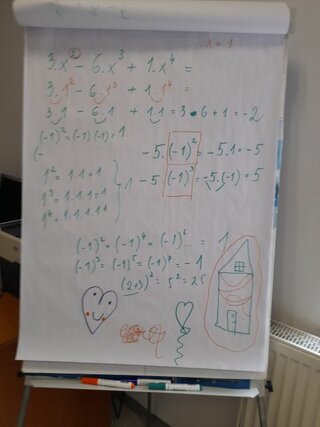 x = 1
3x² - 6.x³ + 1.x⁴ =
3.1² - 6.1³ + 1.1⁴ =
3.1 - 6.1 + 1.1 = 3 - 6 + 1 = -2
(-1)² = (-1).(-1) = 1
(-
-5.(-1)² = -5.1 = -5
1² = 1.1 = 1
-5 (-1)³ = -5.(-1) = 5
1³ = 1.1.1 = 1
1⁴ = 1.1.1.11
(-1)² = (-1)⁴ = (-1)⁶ ... = 1
(-1)³ = (-1)⁵ = (-1)⁷ = -1
(2+3)² = 5² = 25